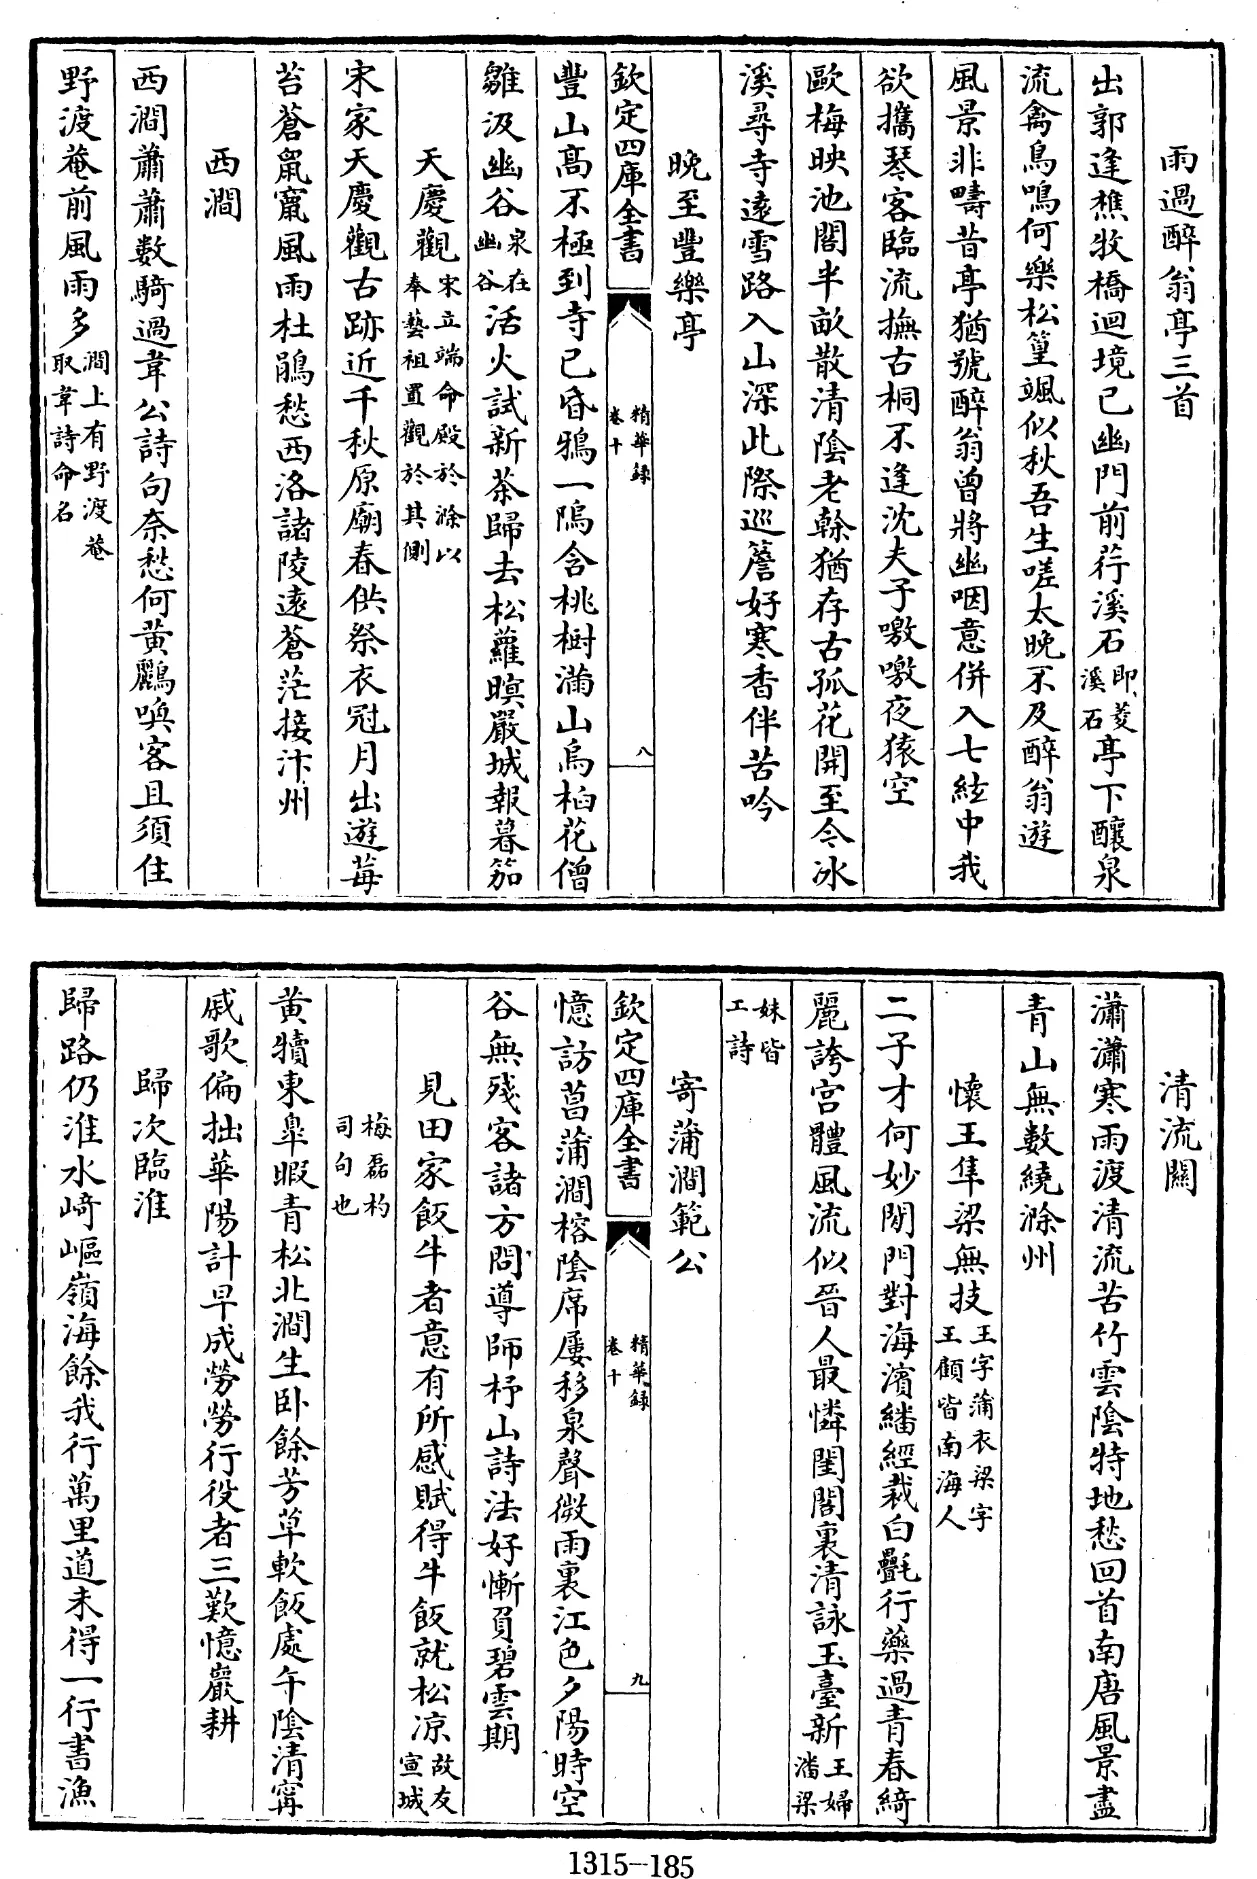 雨過醉翁亭三首
出郭逢樵牧橋迴境已幽門前荇溪石即菱溪石亭下釀泉
流禽鳥鳴何樂松篁颯似秋吾生嗟太晚不及醉翁遊
風景非疇昔亭猶號醉翁曾將幽咽意併入七絃中我
欲攜琴客臨流撫古桐不逢沈夫子噭噭夜猿空
歐梅映池閣半畝散清陰老榦猶存古孤花開至今冰
溪尋寺遠雪路入山深此際巡簷好寒香伴苦吟
晚至豐樂亭
欽定四庫全書
精華録
卷十
八
豐山高不極到寺已昏鴉一隖含桃樹滿山烏桕花僧
雛汲幽谷泉在幽谷活火試新茶歸去松蘿暝嚴城報暮笳
天慶觀宋立端命殿於滁以奉藝祖置觀於其側
宋家天慶觀古跡近千秋原廟春供祭衣冠月出遊莓
苔蒼鼠竄風雨杜鵑愁西洛諸陵遠蒼茫接汴州
西澗
西澗蕭蕭數騎過韋公詩句奈愁何黃鸝喚客且須住
野渡菴前風雨多澗上有野渡菴取韋詩命名
清流關
瀟瀟寒雨渡清流苦竹雲陰特地愁回首南唐風景盡
青山無數繞滁州
懷王隼梁無技王字蒲衣梁字王顧皆南海人
二子才何妙閒門對海濱繙經裁白㲲行藥過青春綺
麗誇宮體風流似晉人最憐閨閤裏清詠玉臺新王婦潘梁
妹皆工詩
寄蒲澗範公
欽定四庫全書
精華録
卷十
九
憶訪菖蒲澗榕陰席屢移泉聲微雨裏江色夕陽時空
谷無殘客諸方問導師杼山詩法好慚負碧雲期
見田家飯牛者意有所感賦得牛飯就松凉故友宣城
梅磊杓司句也
黃犢東皐暇青松北澗生卧餘芳草軟飯處午陰清甯
戚歌偏拙華陽計早成勞勞行役者三歎憶巖耕
歸次臨淮
歸路仍淮水崎嶇嶺海餘我行萬里道未得一行書漁
1315-185